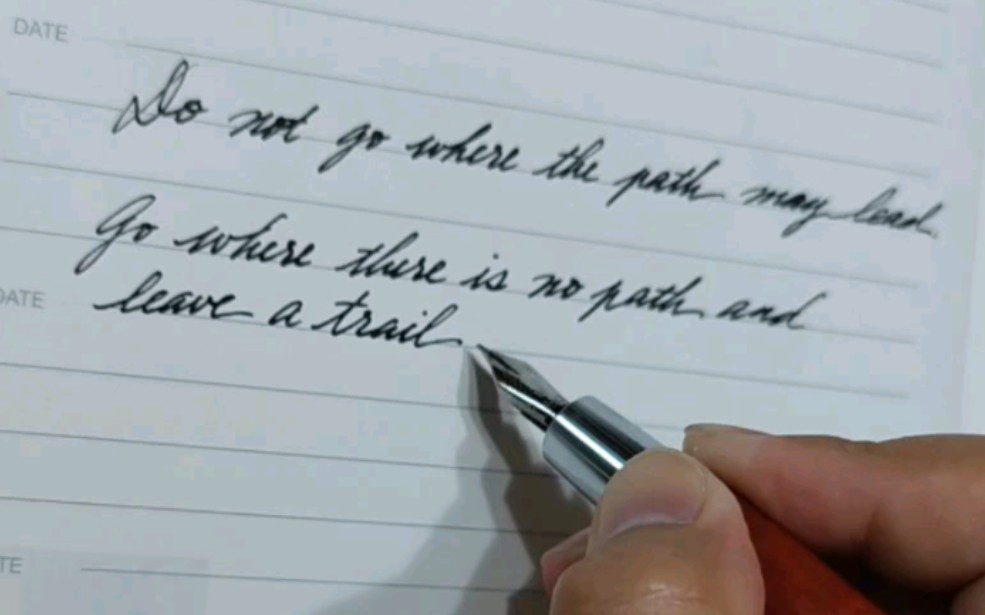 DATE
Do not go where the path may lead.
Go where there is no path and
DATE
leave a trail
TE